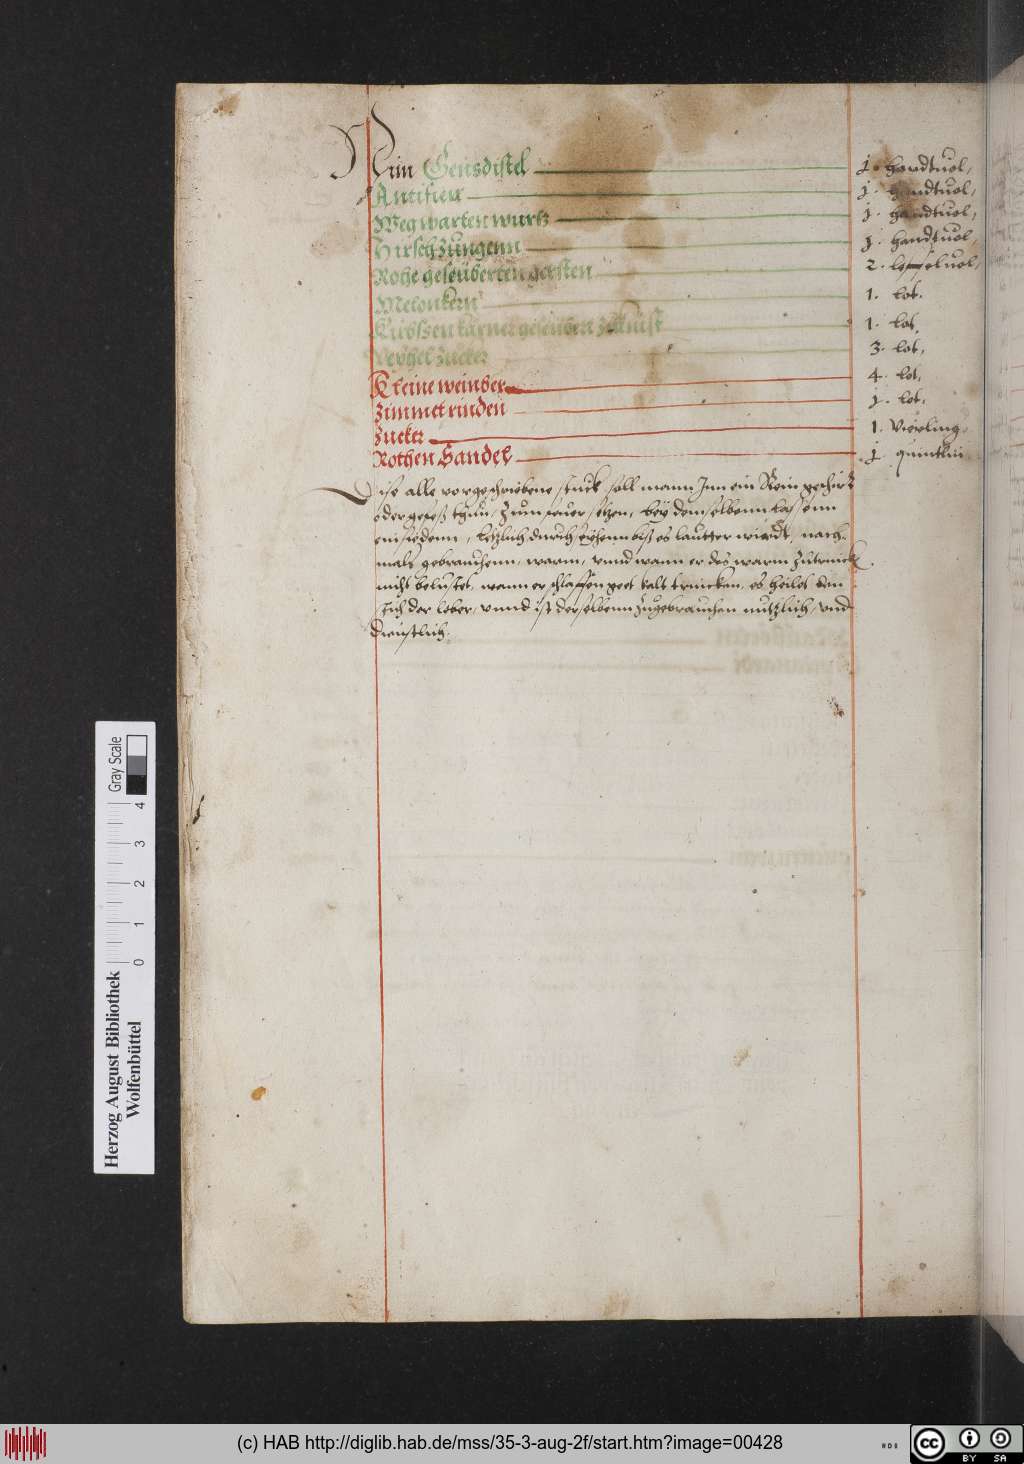 Nim Gensdistel j. handtvol,
Antifien j. handtvol,
Wegwarten wurtz j. handtvol,
Hirschzungenn j. handtvol,
Rohe geseuberten gersten 2. leffelvol,
Melonkern 1. Lot.
Kürbßen kärner geseubert 1. Lot,
Veyhel zucker 3. Lot,
Kleine weinber 4. Lot,
Zimmet rinden j. Lot,
Zucker 1. Vierling
Rothen Sandel j. quintlin
Dise alle vorgeschribene stuck soll mann Inn ein Rein geschirr
oder gefeß thun, Zum feuer setzen, bey demselbenn lassenn
einsiedenn, letzlich durch seyhenn biß es lautter wirdt, nach-
mals gebrauchenn, warm, vnnd wann er des warm Zutrincken
nicht belustet, wann er schlaffen geet kalt trincken, es heilet den
stich der leber, vnnd ist derselbenn Zugebrauchen nutzlich, vnd
dienstlich.
Herzog August Bibliothek
Wolfenbüttel
0 1 2 3 4
Gray Scale
(c) HAB http://diglib.hab.de/mss/35-3-aug-2f/start.htm?image=00428
cc BY SA